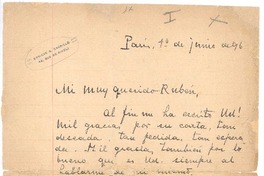 I X
París, 1º de junio de 96
Mi muy querido Rubén,
Al fin me ha escrito Ud!
Mil gracias por su carta, tan
deseada, tan pedida, tan espera
da. Mil gracias, también por lo
bueno que es Ud. siempre al
hablarme de mi